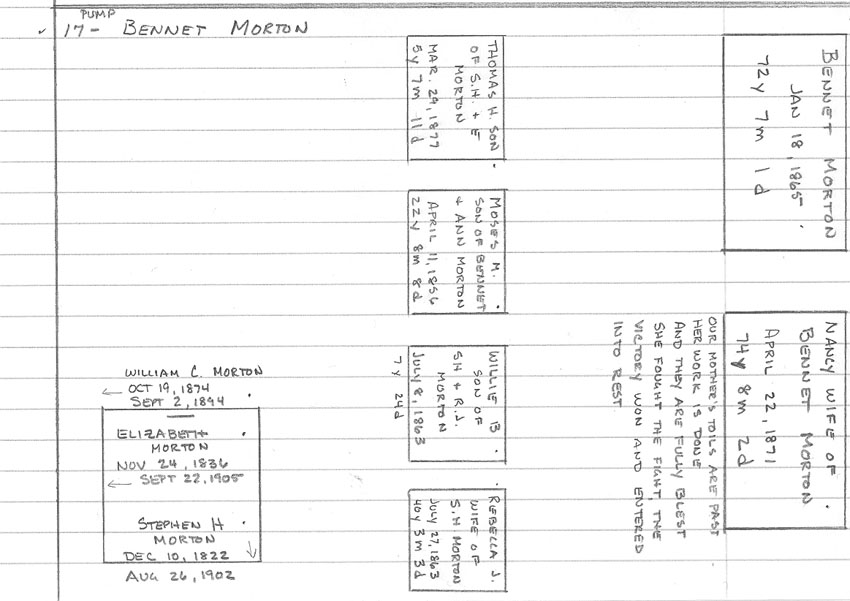 PUMP
17- BENNET MORTON
THOMAS H. SON
OF S.H. + E
MORTON
MAR. 29, 1877
5y 7m 11d
MOSES M.
SON OF BENNET
+ ANN MORTON
APRIL 11, 1856
22y 8m 8d
WILLIE B
SON OF
SH + R.J.
MORTON
July 8, 1863
7y 24d
REBELLA J.
WIFE OF
S.H MORTON
July 27, 1863
40y 3m 3d
BENNET MORTON
JAN 18, 1865
72y 7m 1d
NANCY WIFE OF
BENNET MORTON
APRIL 22, 1871
74y 8m 2d
OUR MOTHER'S TOILS ARE PAST
HER WORK IS DONE
AND THEY ARE FULLY BLEST
SHE FOUGHT THE FIGHT, THE
VICTORY WON AND ENTERED
INTO REST
WILLIAM C. MORTON
OCT 19, 1874
SEPT 2, 1894
ELIZABETH
MORTON
NOV 24, 1836
SEPT 22, 1905
STEPHEN H
MORTON
DEC 10, 1822
AUG 26, 1902